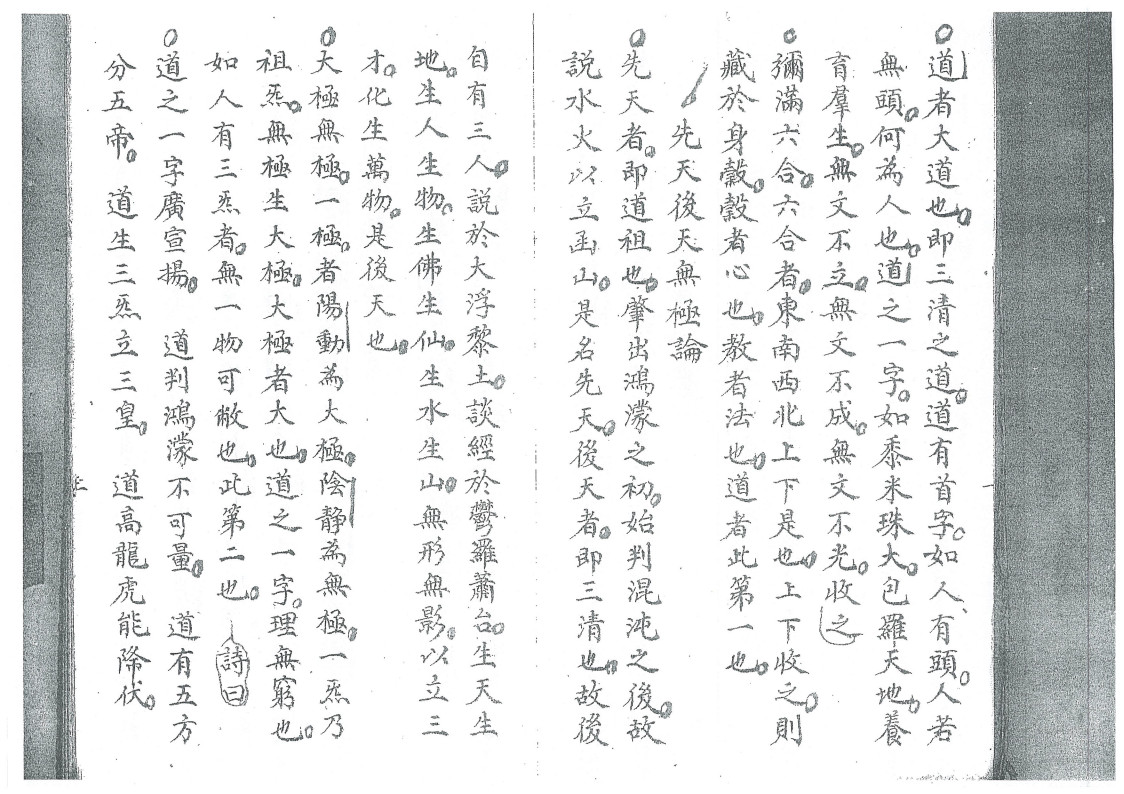 道者大道也即三清之道道有首字如人有頭人若
無頭何為人也道之一字如黍米珠大包羅天地養
育羣生無文不立無文不成無文不光收之
彌滿六合六合者東南西北上下是也上下收之則
藏於身縠縠者心也教者法也道者此第一也
先天後天無極論
先天者即道祖也肇出鴻濛之初始判混沌之後故
説水火以立函山是名先天後天者即三清也故後
自有三人説於大浮黎土談經於鬱羅蕭台生天生
地生人生物生佛生仙生水生山無形無影以立三
才化生萬物是後天也
大極無極一極者陽動為大極陰静為無極一炁乃
祖炁無極生大極大極者大也道之一字理無窮也
如人有三炁者無一物可敝也此第二也詩曰
道之一字廣宣揚 道判鴻濛不可量 道有五方
分五帝 道生三炁立三皇 道高龍虎能降伏